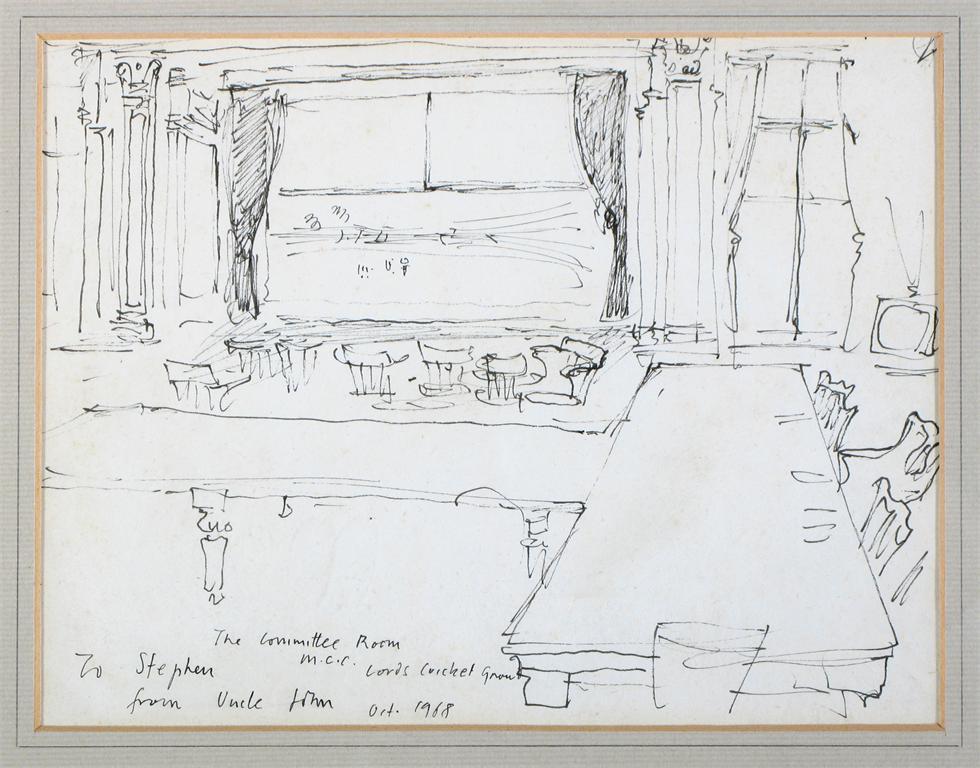 The Committee Room
M.C.C. Lords Cricket Ground
To Stephen
from Uncle John Oct. 1968